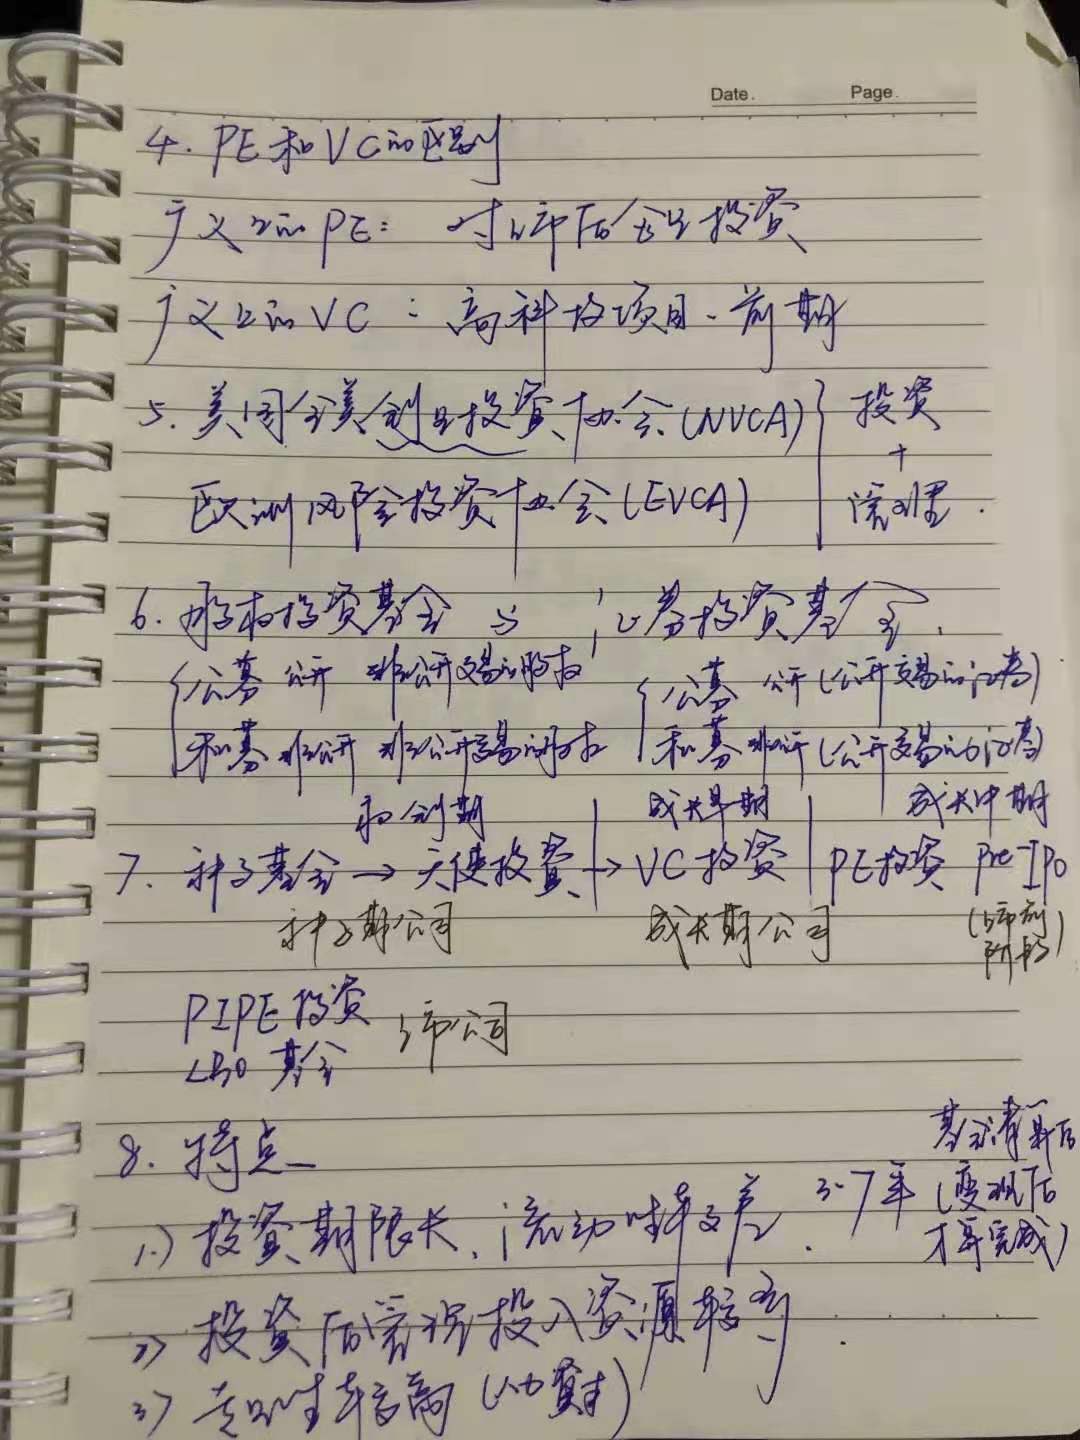 Date. Page.
4. PE和VC的区别
广义上的PE: 对上市后企业投资
广义上的VC: 高科技项目、前期
5. 美国全美创业投资协会(NVCA) 投资
+
欧洲风险投资协会(EVCA) 管理.
6. 股权投资基金 与 证券投资基金.
公募 公开 非公开交易的股权 公募 公开(公开交易的证券)
私募 非公开 非公开交易的股权 私募 非公开(公开交易的证券)
初创期 成长早期 成长中期
7. 种子基金→天使投资→VC投资 PE投资 Pre-IPO
种子期公司 成长期公司 (上市前
阶段)
PIPE投资 上市公司
LBO 基金
8. 特点 基金清算后
1.) 投资期限长、流动性较差. 3-7年 (变现后
才算完成)
2) 投资后管理投入资源较多.
3) 专业性较高 (人力资本)